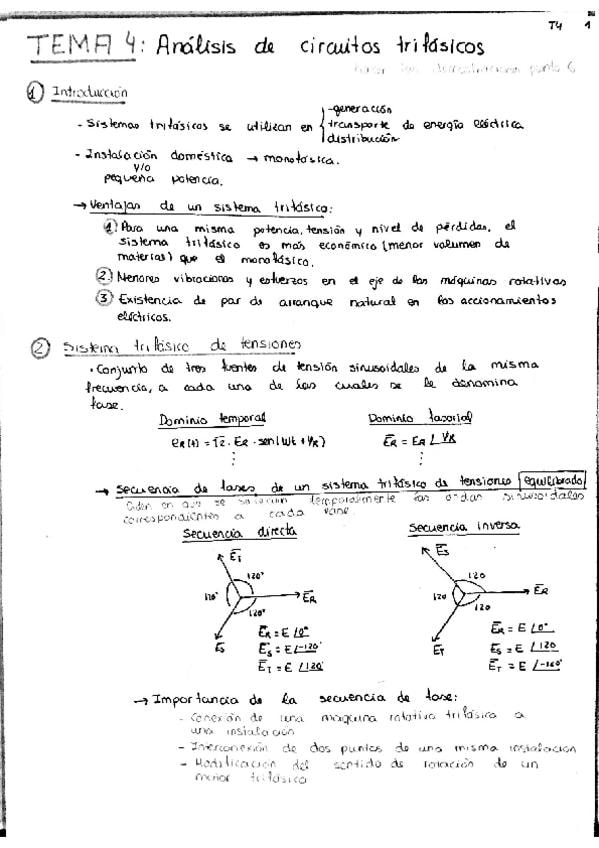 T4 1
TEMA 4: Análisis de circuitos trifásicos
hacer las demostraciones punto 6
1 Introducción
- Sistemas trifásicos se utilizan en { - generación
transporte de energía eléctrica
distribución
- Instalación doméstica → monofásica.
y/o
pequeña potencia.
→ Ventajas de un sistema trifásico:
1 Para una misma potencia, tensión y nivel de pérdidas, el
sistema trifásico es más económico (menor volumen de
material) que el monofásico.
2 Menores vibraciones y esfuerzos en el eje de las máquinas rotativas
3 Existencia de par de arranque natural en los accionamientos
eléctricos.
2 Sistema trifásico de tensiones
· Conjunto de tres fuentes de tensión sinusoidales de la misma
frecuencia, a cada una de las cuales se le denomina
fase.
Dominio temporal Dominio fasorial
eR(t) = √2 · ER · sen(wt + φR) ER = ER ∠φR
⋮ ⋮
→ Secuencia de fases de un sistema trifásico de tensiones equilibrado
Orden en que se temporalmente las ondas sinusoidales
correspondientes a cada fase.
Secuencia directa Secuencia inversa
ET ES
120° 120
120° ER 120 ER
120° 120
ES ET
ER = E ∠0° ER = E ∠0°
ES = E ∠-120° ES = E ∠120
ET = E ∠120° ET = E ∠-120°
→ Importancia de la secuencia de fase:
- Conexión de una máquina rotativa trifásica a
una instalación
- Interconexión de dos puntos de una misma instalación
- Modificación del sentido de rotación de un
motor trifásico